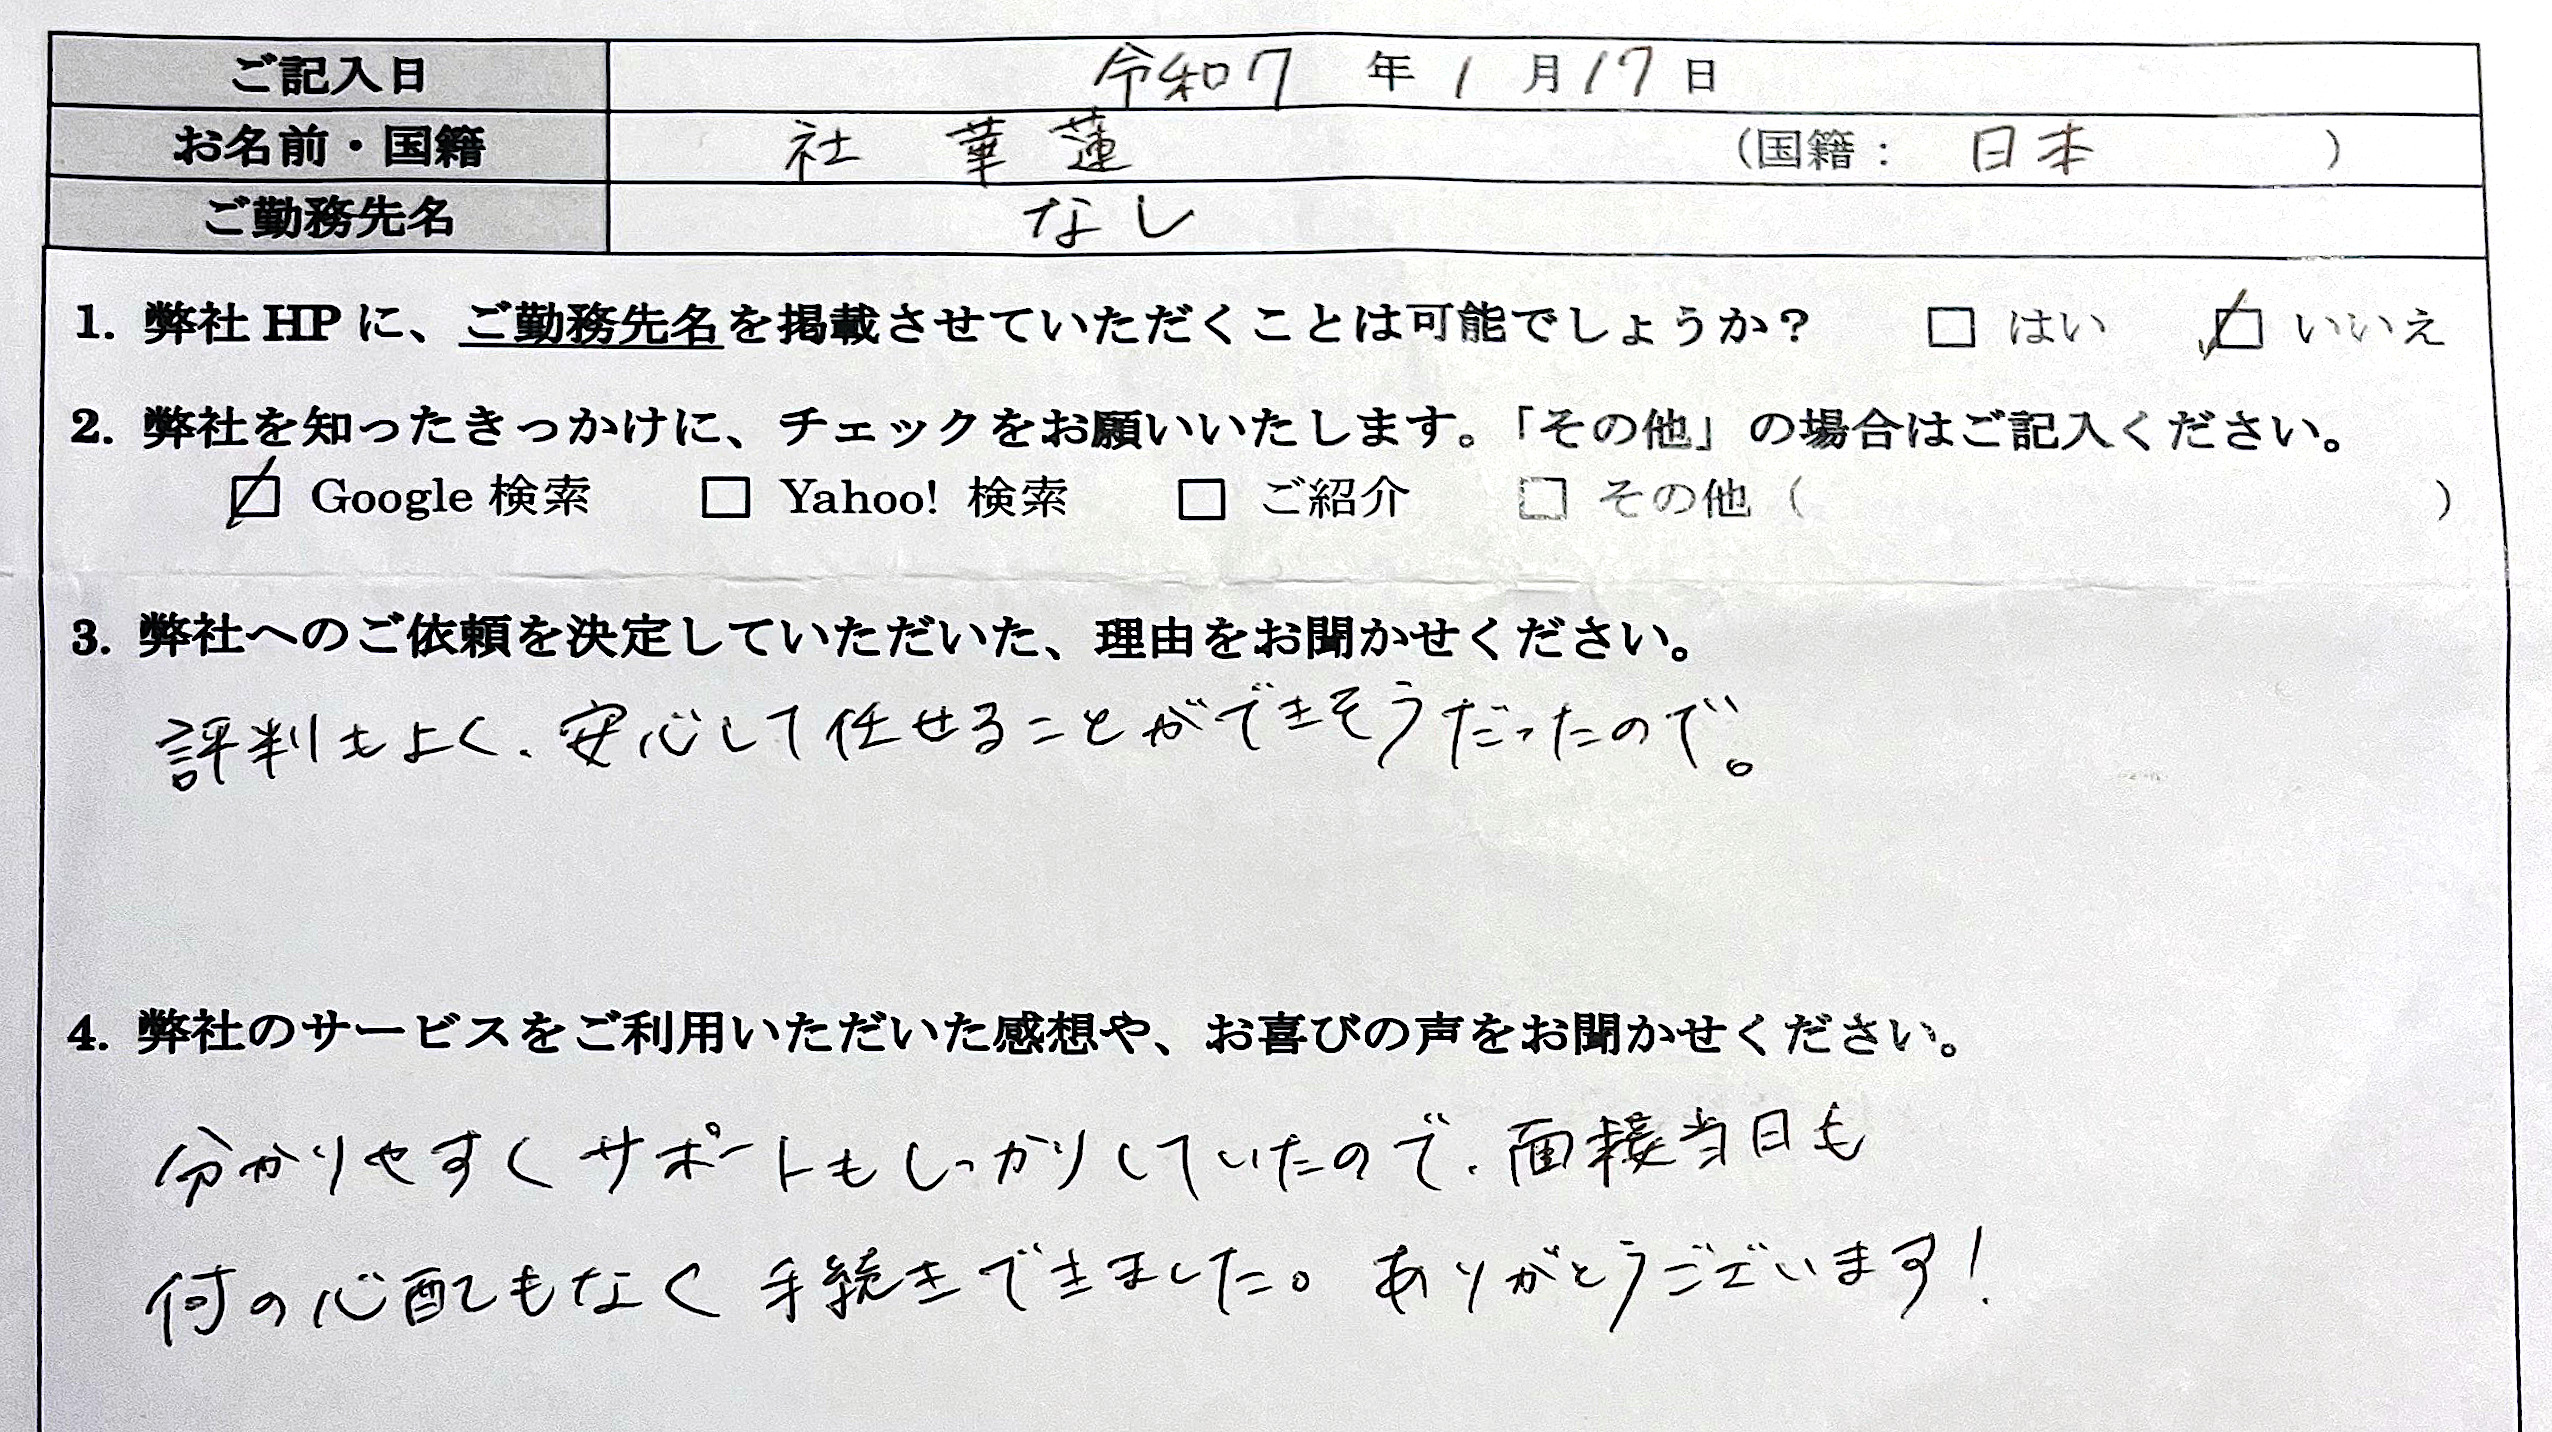 ご記入日 令和7 年 1 月 17 日
お名前・国籍 社 華 蓮 (国籍: 日本 )
ご勤務先名 なし
1. 弊社 HP に、ご勤務先名を掲載させていただくことは可能でしょうか? □ はい ☑ いいえ
2. 弊社を知ったきっかけに、チェックをお願いいたします。「その他」の場合はご記入ください。
☑ Google 検索 □ Yahoo! 検索 □ ご紹介 □ その他 ( )
3. 弊社へのご依頼を決定していただいた、理由をお聞かせください。
評判もよく、安心して任せることができそうだったので。
4. 弊社のサービスをご利用いただいた感想や、お喜びの声をお聞かせください。
分かりやすくサポートもしっかりしていたので、面接当日も
何の心配もなく手続きできました。ありがとうございます!